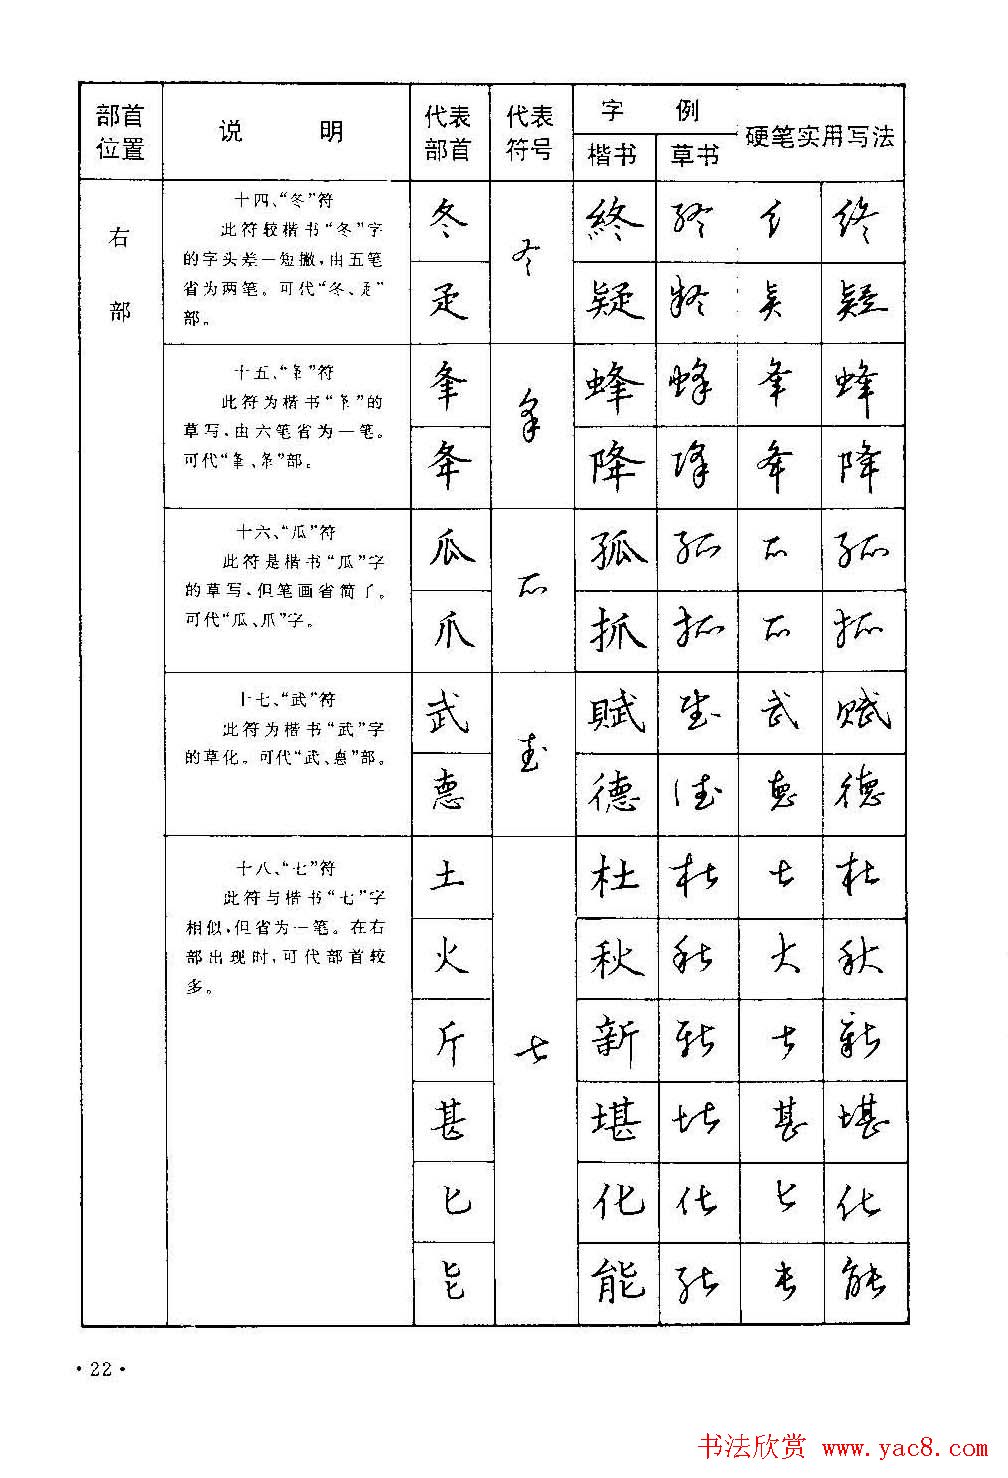 部首位置 说 明 代表部首 代表符号 字 例 硬笔实用写法
楷书 草书
右部
十四、“冬”符
此符较楷书“冬”字
的字头差一短撇，由五笔
省为两笔。可代“冬、疋”
部。
冬 終
疋 疑 疑
十五、“夆”符
此符为楷书“夆”的
草写，由六笔省为一笔。
可代“夆、夅”部。
夆 蜂 蜂 夆 蜂
夅 降 降 夅 降
十六、“瓜”符
此符是楷书“瓜”字
的草写，但笔画省简了。
可代“瓜、爪”字。
瓜 孤 孤 孤
爪 抓 抓 抓
十七、“武”符
此符为楷书“武”字
的草化。可代“武、悳”部。
武 賦 武 赋
悳 德 德 悳 德
十八、“七”符
此符与楷书“七”字
相似，但省为一笔。在右
部出现时，可代部首较
多。
七
土 杜 杜 杜
火 秋 秋 秋
斤 新 新 新
甚 堪 堪 甚 堪
匕 化 化 匕 化
能 能 能
·22·
书法欣赏 www.yac8.com